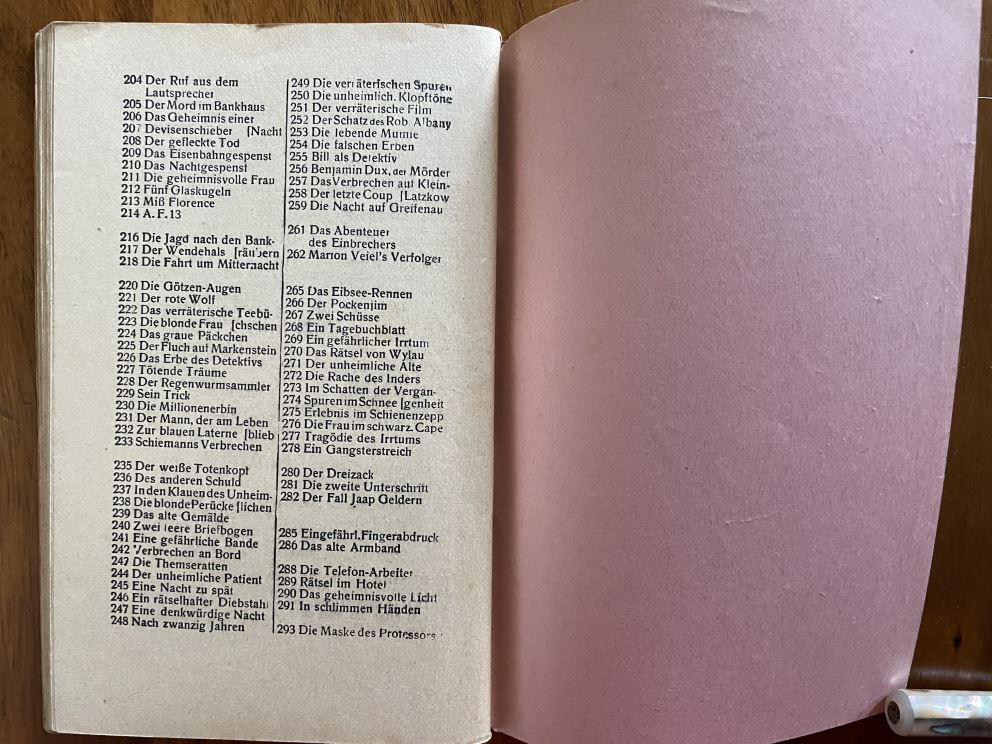 204 Der Ruf aus dem
Lautsprecher
205 Der Mord im Bankhaus
206 Das Geheimnis einer
207 Devisenschieber [Nacht
208 Der gefleckte Tod
209 Das Eisenbahngespenst
210 Das Nachtgespenst
211 Die geheimnisvolle Frau
212 Fünf Glaskugeln
213 Miß Florence
214 A. F. 13
216 Die Jagd nach den Bank-
217 Der Wendehals [räubern
218 Die Fahrt um Mitternacht
220 Die Götzen-Augen
221 Der rote Wolf
222 Das verräterische Teebü-
223 Die blonde Frau [chschen
224 Das graue Päckchen
225 Der Fluch auf Markenstein
226 Das Erbe des Detektivs
227 Tötende Träume
228 Der Regenwurmsammler
229 Sein Trick
230 Die Millionenerbin
231 Der Mann, der am Leben
232 Zur blauen Laterne [blieb
233 Schiemanns Verbrechen
235 Der weiße Totenkopf
236 Des anderen Schuld
237 In den Klauen des Unheim-
238 Die blonde Perücke [lichen
239 Das alte Gemälde
240 Zwei leere Briefbogen
241 Eine gefährliche Bande
242 Verbrechen an Bord
247 Die Themseratten
244 Der unheimliche Patient
245 Eine Nacht zu spät
246 Ein rätselhafter Diebstahl
247 Eine denkwürdige Nacht
248 Nach zwanzig Jahren
249 Die verräterischen Spuren
250 Die unheimlich. Klopftöne
251 Der verräterische Film
252 Der Schatz des Rob. Albany
253 Die lebende Mumie
254 Die falschen Erben
255 Bill als Detektiv
256 Benjamin Dux, der Mörder
257 Das Verbrechen auf Klein-
258 Der letzte Coup [Latzkow
259 Die Nacht auf Greifenau
261 Das Abenteuer
des Einbrechers
262 Marion Veiel's Verfolger
265 Das Eibsee-Rennen
266 Der Pockenjim
267 Zwei Schüsse
268 Ein Tagebuchblatt
269 Ein gefährlicher Irrtum
270 Das Rätsel von Wylau
271 Der unheimliche Alte
272 Die Rache des Inders
273 Im Schatten der Vergan-
274 Spuren im Schnee [genheit
275 Erlebnis im Schienenzepp
276 Die Frau im schwarz. Cape
277 Tragödie des Irrtums
278 Ein Gangsterstreich
280 Der Dreizack
281 Die zweite Unterschrift
282 Der Fall Jaap Geldern
285 Ein gefährl. Fingerabdruck
286 Das alte Armband
288 Die Telefon-Arbeiter
289 Rätsel im Hotel
290 Das geheimnisvolle Licht
291 In schlimmen Händen
293 Die Maske des Professors